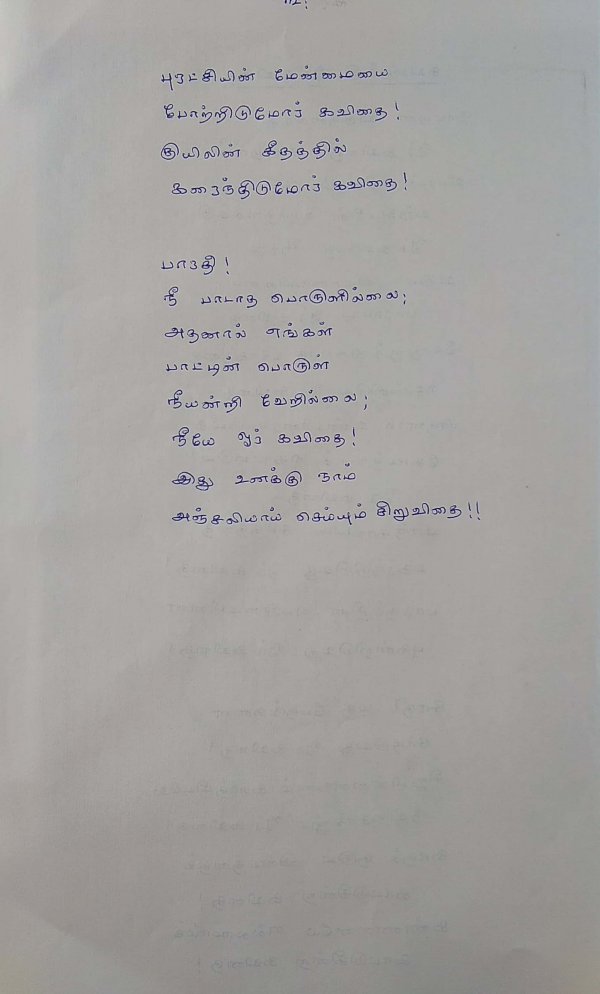 புரட்சியின் மேன்மையை
போற்றிடுமோர் கவிதை!
குயிலின் கீதத்தில்
கரைந்திடுமோர் கவிதை!
பாரதீ!
நீ பாடாத பொருளில்லை;
அதனால் எங்கள்
பாட்டின் பொருள்
நீயன்றி வேறில்லை;
நீயே ஓர் கவிதை!
இது உனக்கு நாம்
அஞ்சலியாய் செய்யும் சிறுவிதை!!